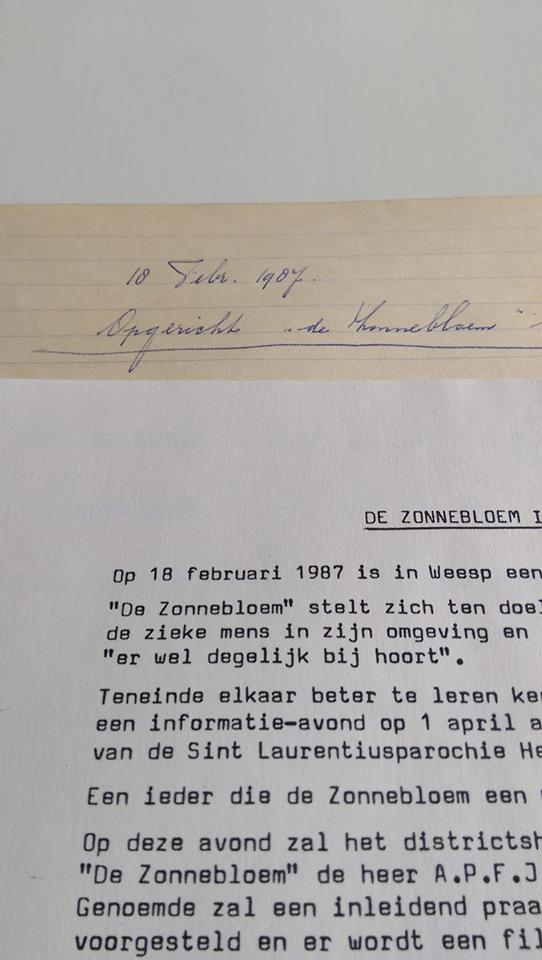 18 Febr. 1987.
Opgericht "de Zonnebloem"
DE ZONNEBLOEM I
Op 18 februari 1987 is in Weesp een
"De Zonnebloem" stelt zich ten doel
de zieke mens in zijn omgeving en
"er wel degelijk bij hoort".
Teneinde elkaar beter te leren ke
een informatie-avond op 1 april a
van de Sint Laurentiusparochie He
Een ieder die de Zonnebloem een
Op deze avond zal het districtsh
"De Zonnebloem" de heer A.P.F.J
Genoemde zal een inleidend praa
voorgesteld en er wordt een fil